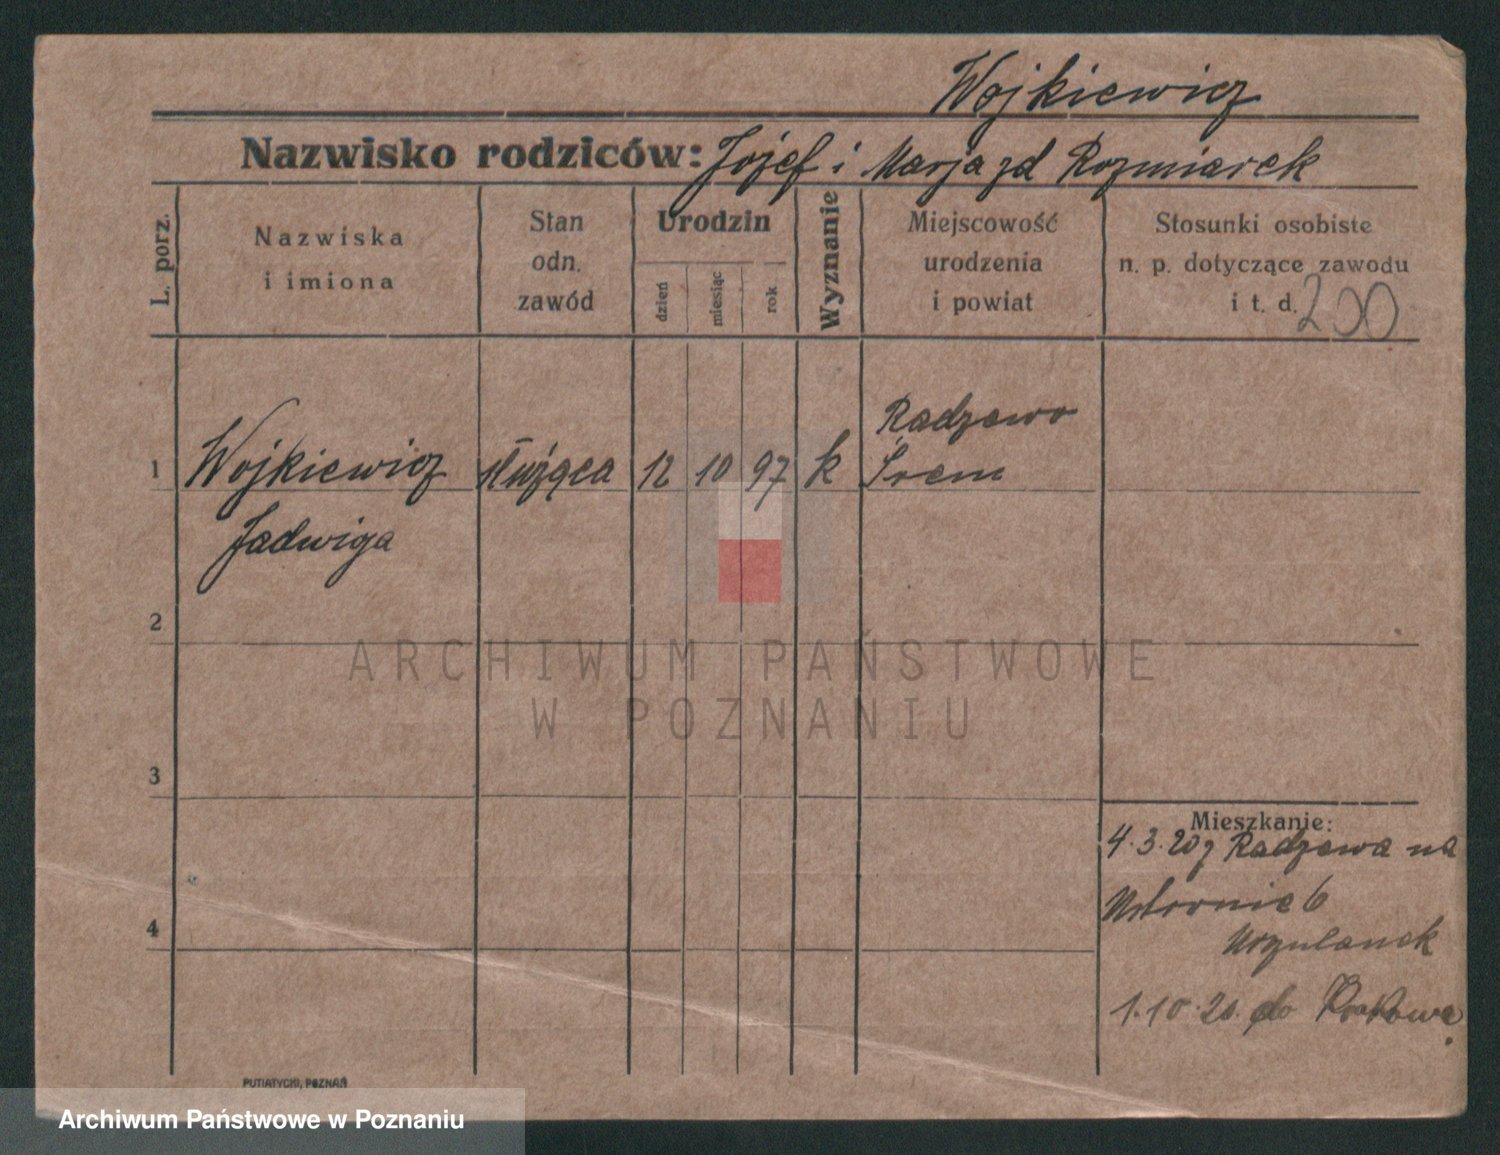 Wojkiewicz
Nazwisko rodziców: Józef i Marja zd Rozmiarek
L. porz.
Nazwiska
i imiona
Stan
odn.
zawód
Urodzin
dzień
miesiąc
rok
Wyznanie
Miejscowość
urodzenia
i powiat
Stosunki osobiste
n. p. dotyczące zawodu
i t. d. 200
Radzewo
1 Wojkiewicz służąca 12 10 97 k Śrem
Jadwiga
2
ARCHIWUM PAŃSTWOWE
W POZNANIU
3
Mieszkanie:
4.3.20 z Radzewa na
6
4
Urzulanek
1.10.20. do Krakowa.
PUTIATYCKI, POZNAŃ
Archiwum Państwowe w Poznaniu